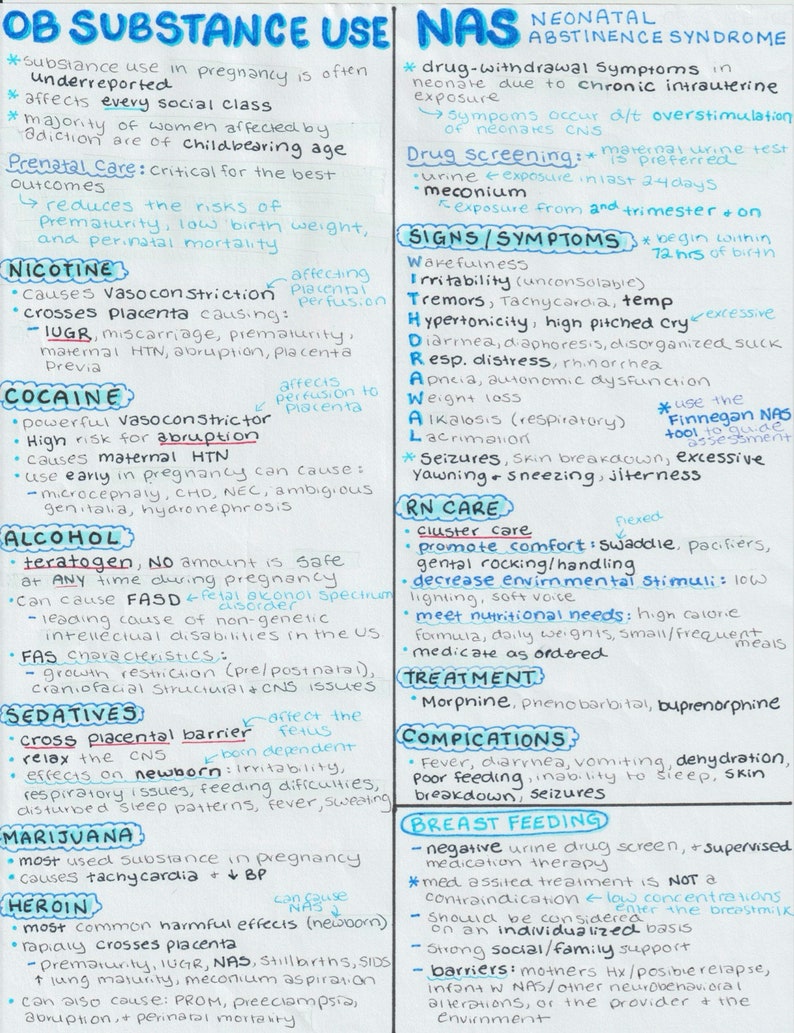 OB SUBSTANCE USE
* substance use in pregnancy is often
underreported
* affects every social class
* majority of women affected by
adiction are of childbearing age
Prenatal Care: critical for the best
outcomes
↳ reduces the risks of
prematurity, low birth weight,
and perinatal mortality
NICOTINE
• causes vasoconstriction ← affecting
placental
perfusion
• crosses placenta causing:
- IUGR, miscarriage, prematurity,
maternal HTN, abruption, placenta
previa
COCAINE
affects
perfusion to
placenta
• powerful vasoconstrictor
• High risk for abruption
• causes maternal HTN
• use early in pregnancy can cause:
- microcephaly, CHD, NEC, ambigious
genitalia, hydronephrosis
ALCOHOL
• teratogen, NO amount is safe
at ANY time during pregnancy
• can cause FASD ← fetal alcohol spectrum
disorder
- leading cause of non-genetic
intellectual disabilities in the US
• FAS characteristics:
- growth restriction (pre/postnatal),
craniofacial structural + CNS issues
SEDATIVES
• cross placental barrier ← affect the
fetus
• relax the CNS
born dependent
• effects on newborn: irritability,
respiratory issues, feeding difficulties,
disturbed sleep patterns, fever, sweating
MARIJUANA
• most used substance in pregnancy
• causes tachycardia + ↓ BP
HEROIN
can cause
NAS
• most common harmful effects (newborn)
• rapidly crosses placenta
- prematurity, IUGR, NAS, stillbirths, SIDS
↑ lung maturity, meconium aspiration
• can also cause: PROM, preeclampsia,
abruption, + perinatal mortality
NAS NEONATAL
ABSTINENCE SYNDROME
* drug-withdrawal symptoms in
neonate due to chronic intrauterine
exposure
↳ sympoms occur d/t overstimulation
of neonates CNS
Drug screening: * maternal urine test
is preferred
• urine ← exposure in last 2-4 days
• meconium
↖ exposure from 2nd trimester + on
SIGNS/SYMPTOMS * begin within
72 hrs of birth
Wakefulness
Irritability (unconsolable)
Tremors, Tachycardia, temp
Hypertonicity, high pitched cry ← excessive
Diarrhea, diaphoresis, disorganized suck
Resp. distress, rhinorrhea
Apneia, autonomic dysfunction
Weight loss
Alkalosis (respiratory)
Lacrimation
* use the
Finnegan NAS
tool to guide
assessment
* Seizures, skin breakdown, excessive
yawning + sneezing, jiterness
RN CARE
• cluster care
flexed
• promote comfort: swaddle, pacifiers,
gental rocking/handling
• decrease envirnmental stimuli: low
lighting, soft voice
• meet nutritional needs: high calorie
formula, daily weights, small/frequent
meals
• medicate as ordered
TREATMENT
• Morphine, phenobarbital, buprenorphine
COMPICATIONS
• Fever, diarrhea, vomiting, dehydration,
poor feeding, inability to sleep, skin
breakdown, seizures
BREAST FEEDING
- negative urine drug screen, + supervised
medication therapy
* med assited treatment is NOT a
contraindication ← low concentrations
enter the breastmilk
- should be considered
on an individualized basis
- strong social/family support
- barriers: mothers Hx/posible relapse,
infant w NAS/other neurobehavioral
alterations, or the provider + the
envirnment